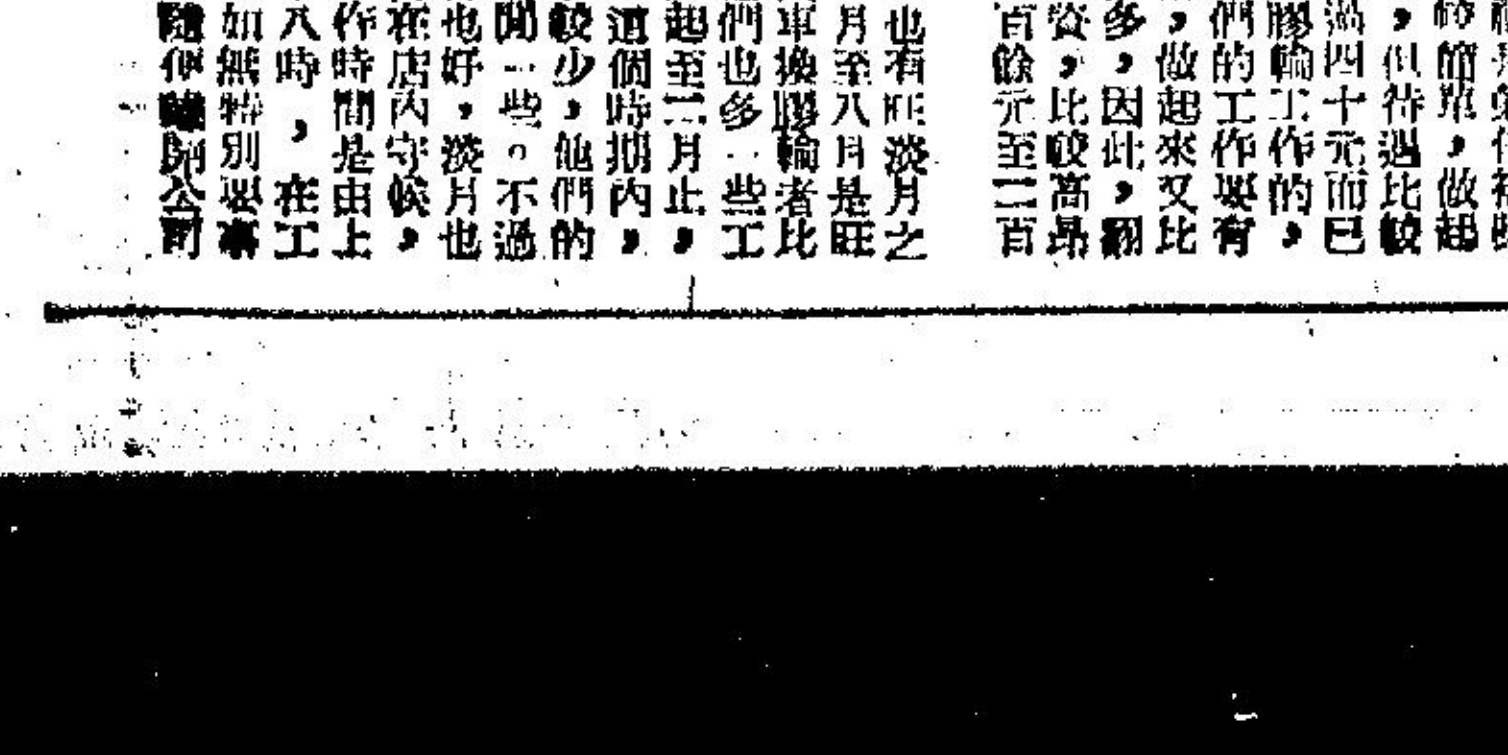 較簡單，做起
，但待遇比較
過四十元而已
膠輪工作的，
們的工作要有
，做起來又比
多，因此，翻
資，比較高昂
百餘元至二百
也有旺淡月之
月至八月是旺
車換膠輪者比
們也多一些工
起至二月止，
這個時期內，
較少，他們的
閒一些。不過
也好，淡月也
在店內守候，
作時間是由上
八時，在工
如無特別要事
隨便離開公司